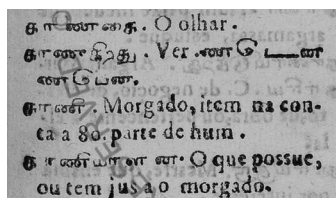 காணகை. O olhar.
காணிறது. Ver. ண்டேன
ண்பேன.
காணி. Morgado, item na con-
ta a 80. parte de hum.
காணியாளன. O que possue,
ou tem jus ao morgado.